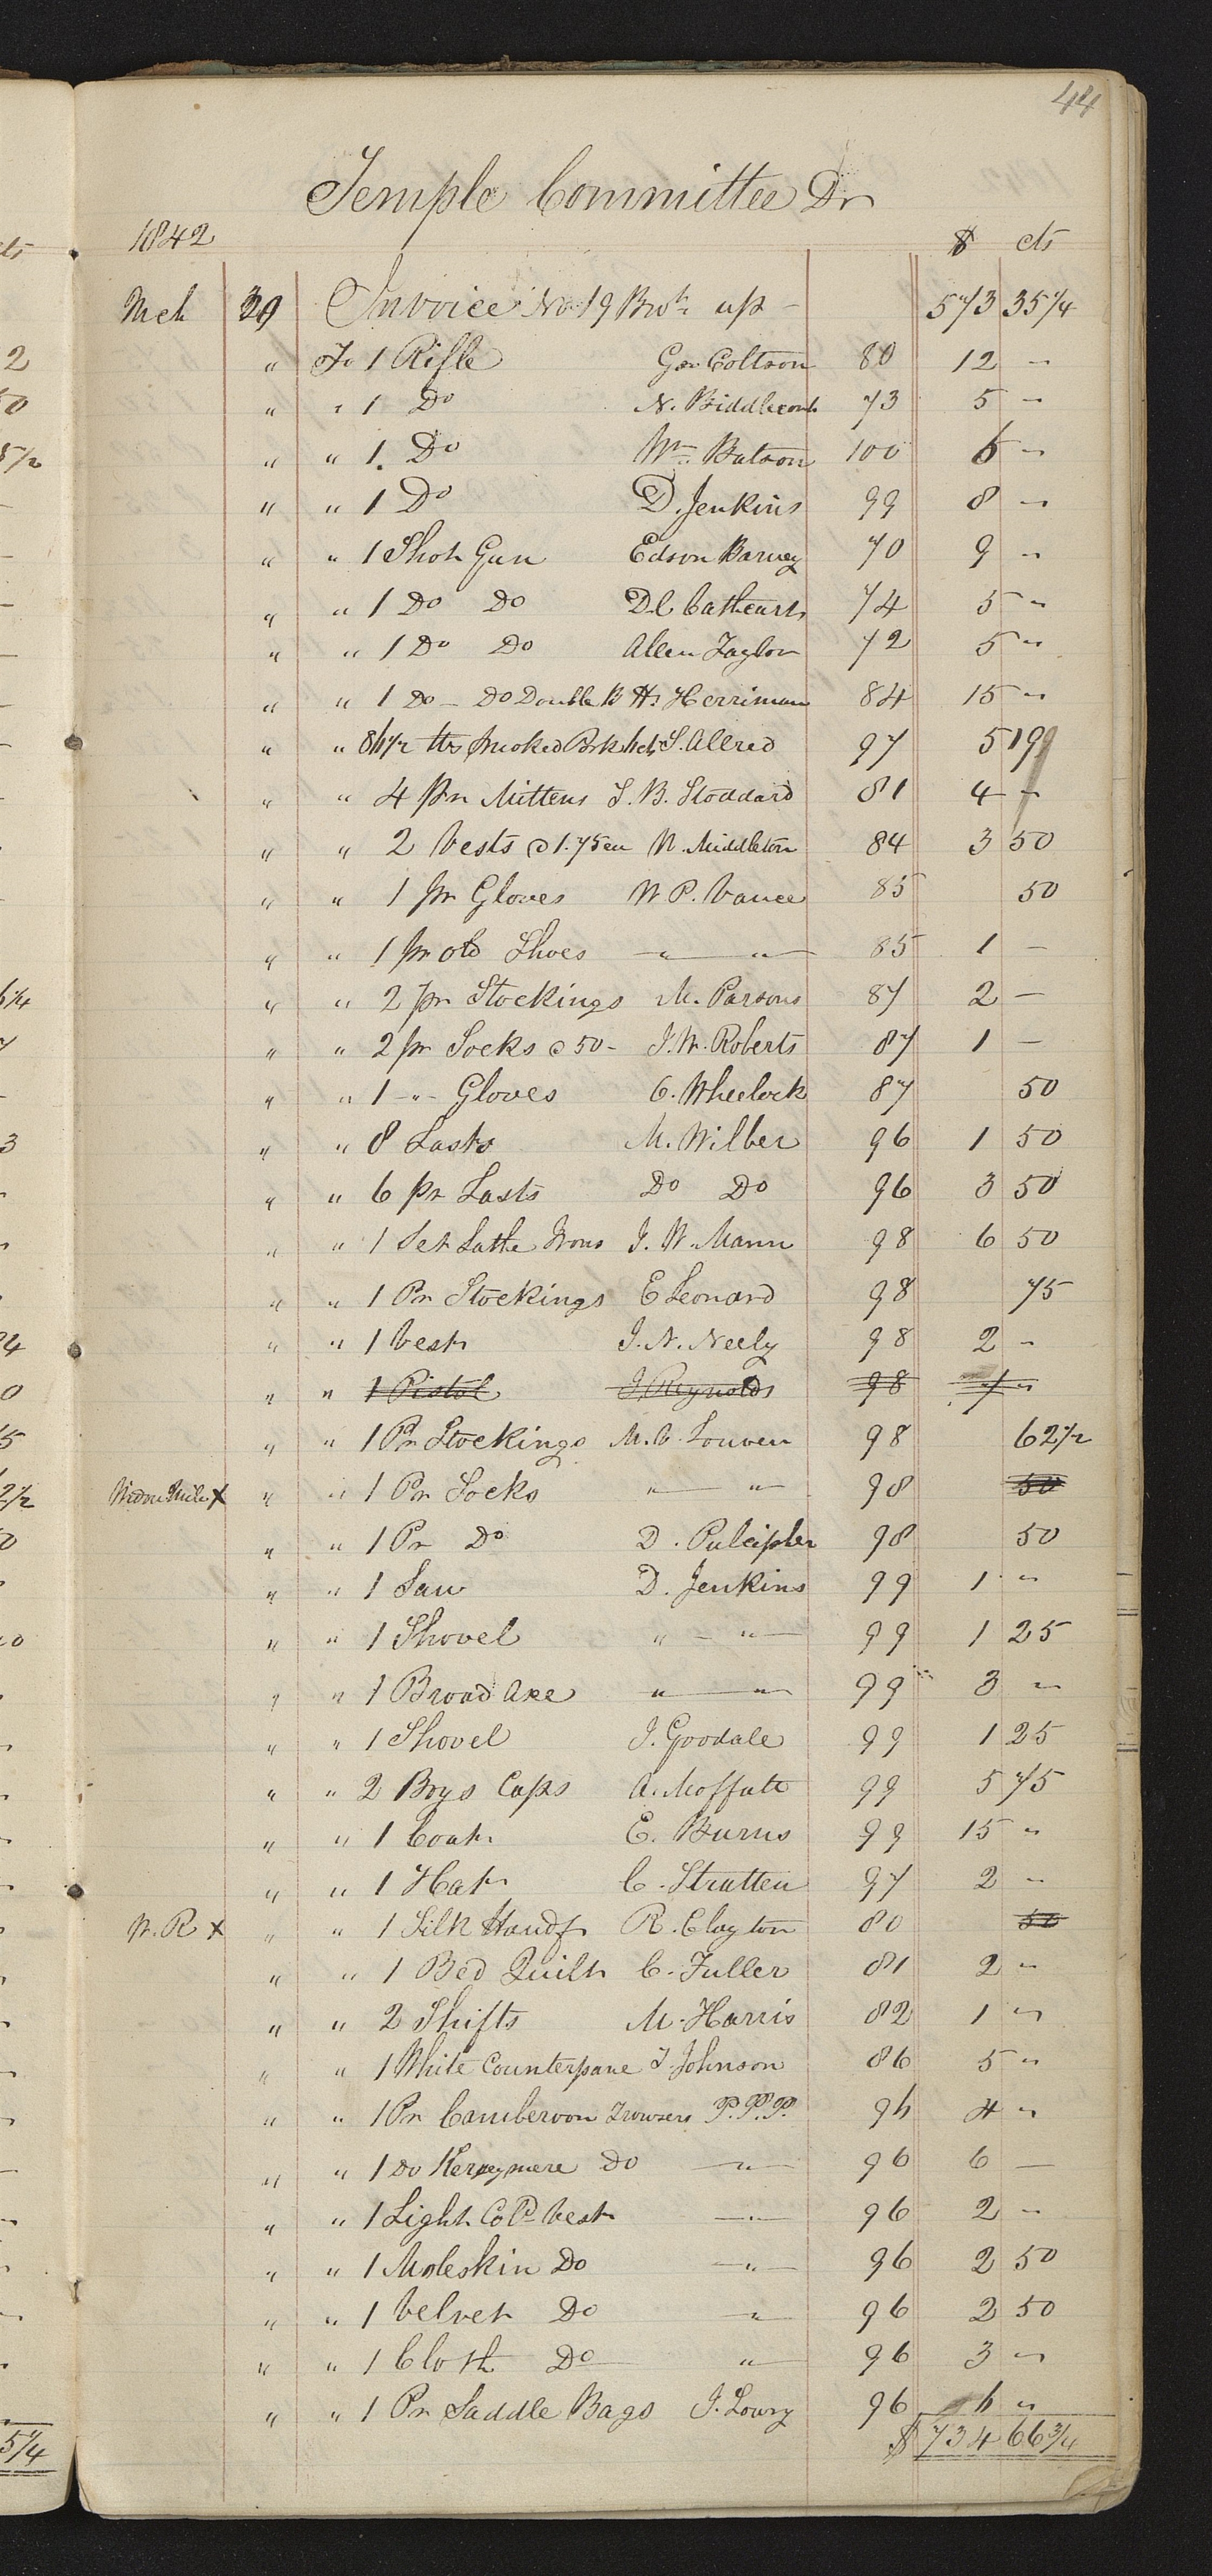 44
Temple Committee Dr
1842 $ cts
Mch 29 Invoice No. 19 Brot. up - 573 35 1/4
" To 1 Rifle Geo Coltson 80 12 "
" " 1 Do N. Biddlecomb 73 5 "
" " 1. Do Wm. Batson 100 6 "
" " 1 Do D. Jenkins 99 8 "
" " 1 Shot Gun Edson Barney 70 9 "
" " 1 Do Do D.C. Cathcart 74 5 "
" " 1 Do Do Allen Taylor 72 5 "
" " 1 Do - Do Double B Hy Herriman 84 15 "
" " 86 1/2 lbs Smoked Pork S. Allred 97 5 19
" " 4 pr Mittens S. B. Stoddard 81 4 "
" " 2 Vests @ 1.75 ea W. Middleton 84 3 50
" " 1 pr Gloves W P. Vance 85 50
" " 1 pr old Shoes " " 85 1 -
" " 2 pr Stockings M. Parsons 87 2 -
" " 2 pr Socks @ 50 - J. W. Roberts 87 1 -
" " 1 - " - Gloves C. Wheelock 87 50
" " 8 Lasts M. Wilber 96 1 50
" " 6 pr Lasts Do Do 96 3 50
" " 1 Set Lathe Irons J. W. Mann 98 6 50
" " 1 Pr Stockings E Leonard 98 75
" " 1 Vest J. N. Neely 98 2 "
" " 1 Pistol J Reynolds 98 7 "
" " 1 Pr Stockings M. V. Louven 98 62 1/2
X " " 1 Pr Socks " " 98 50
" " 1 Pr Do D. Pulcipher 98 50
" " 1 Saw D. Jenkins 99 1 "
" " 1 Shovel " - " 99 1 25
" " 1 Broad Axe " " 99 3 "
" " 1 Shovel J. Goodale 99 1 25
" " 2 Boys Caps A. Moffatt 99 5 75
" " 1 Coat E. Burns 99 15 "
" " 1 Hat C. Stratten 97 2 "
W. R X " " 1 Silk Handf R. Clayton 80 50
" " 1 Bed Quilt C. Fuller 81 2 "
" " 2 Shifts M. Harris 82 1 "
" " 1 White Counterpane J Johnson 86 5 "
" " 1 Pr Camberoon Trowsers P. P. P. 96 4 "
" " 1 Do Kerseymere Do " 96 6 -
" " 1 Light Cold Vest " 96 2 "
" " 1 Moleskin Do " 96 2 50
" " 1 Velvet Do " 96 2 50
" " 1 Cloth Do " 96 3 "
" " 1 Pr Saddle Bags J. Lowry 96 6 "
$ 734 66 3/4